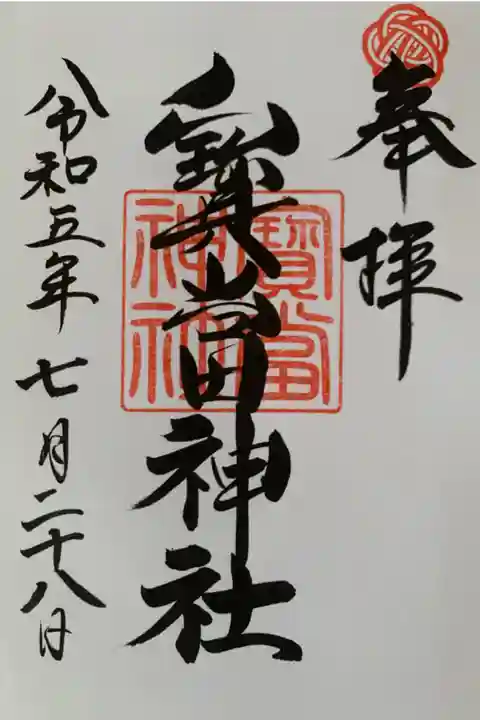 奉拝
寳當神社
寳當神社
令和五年七月二十八日